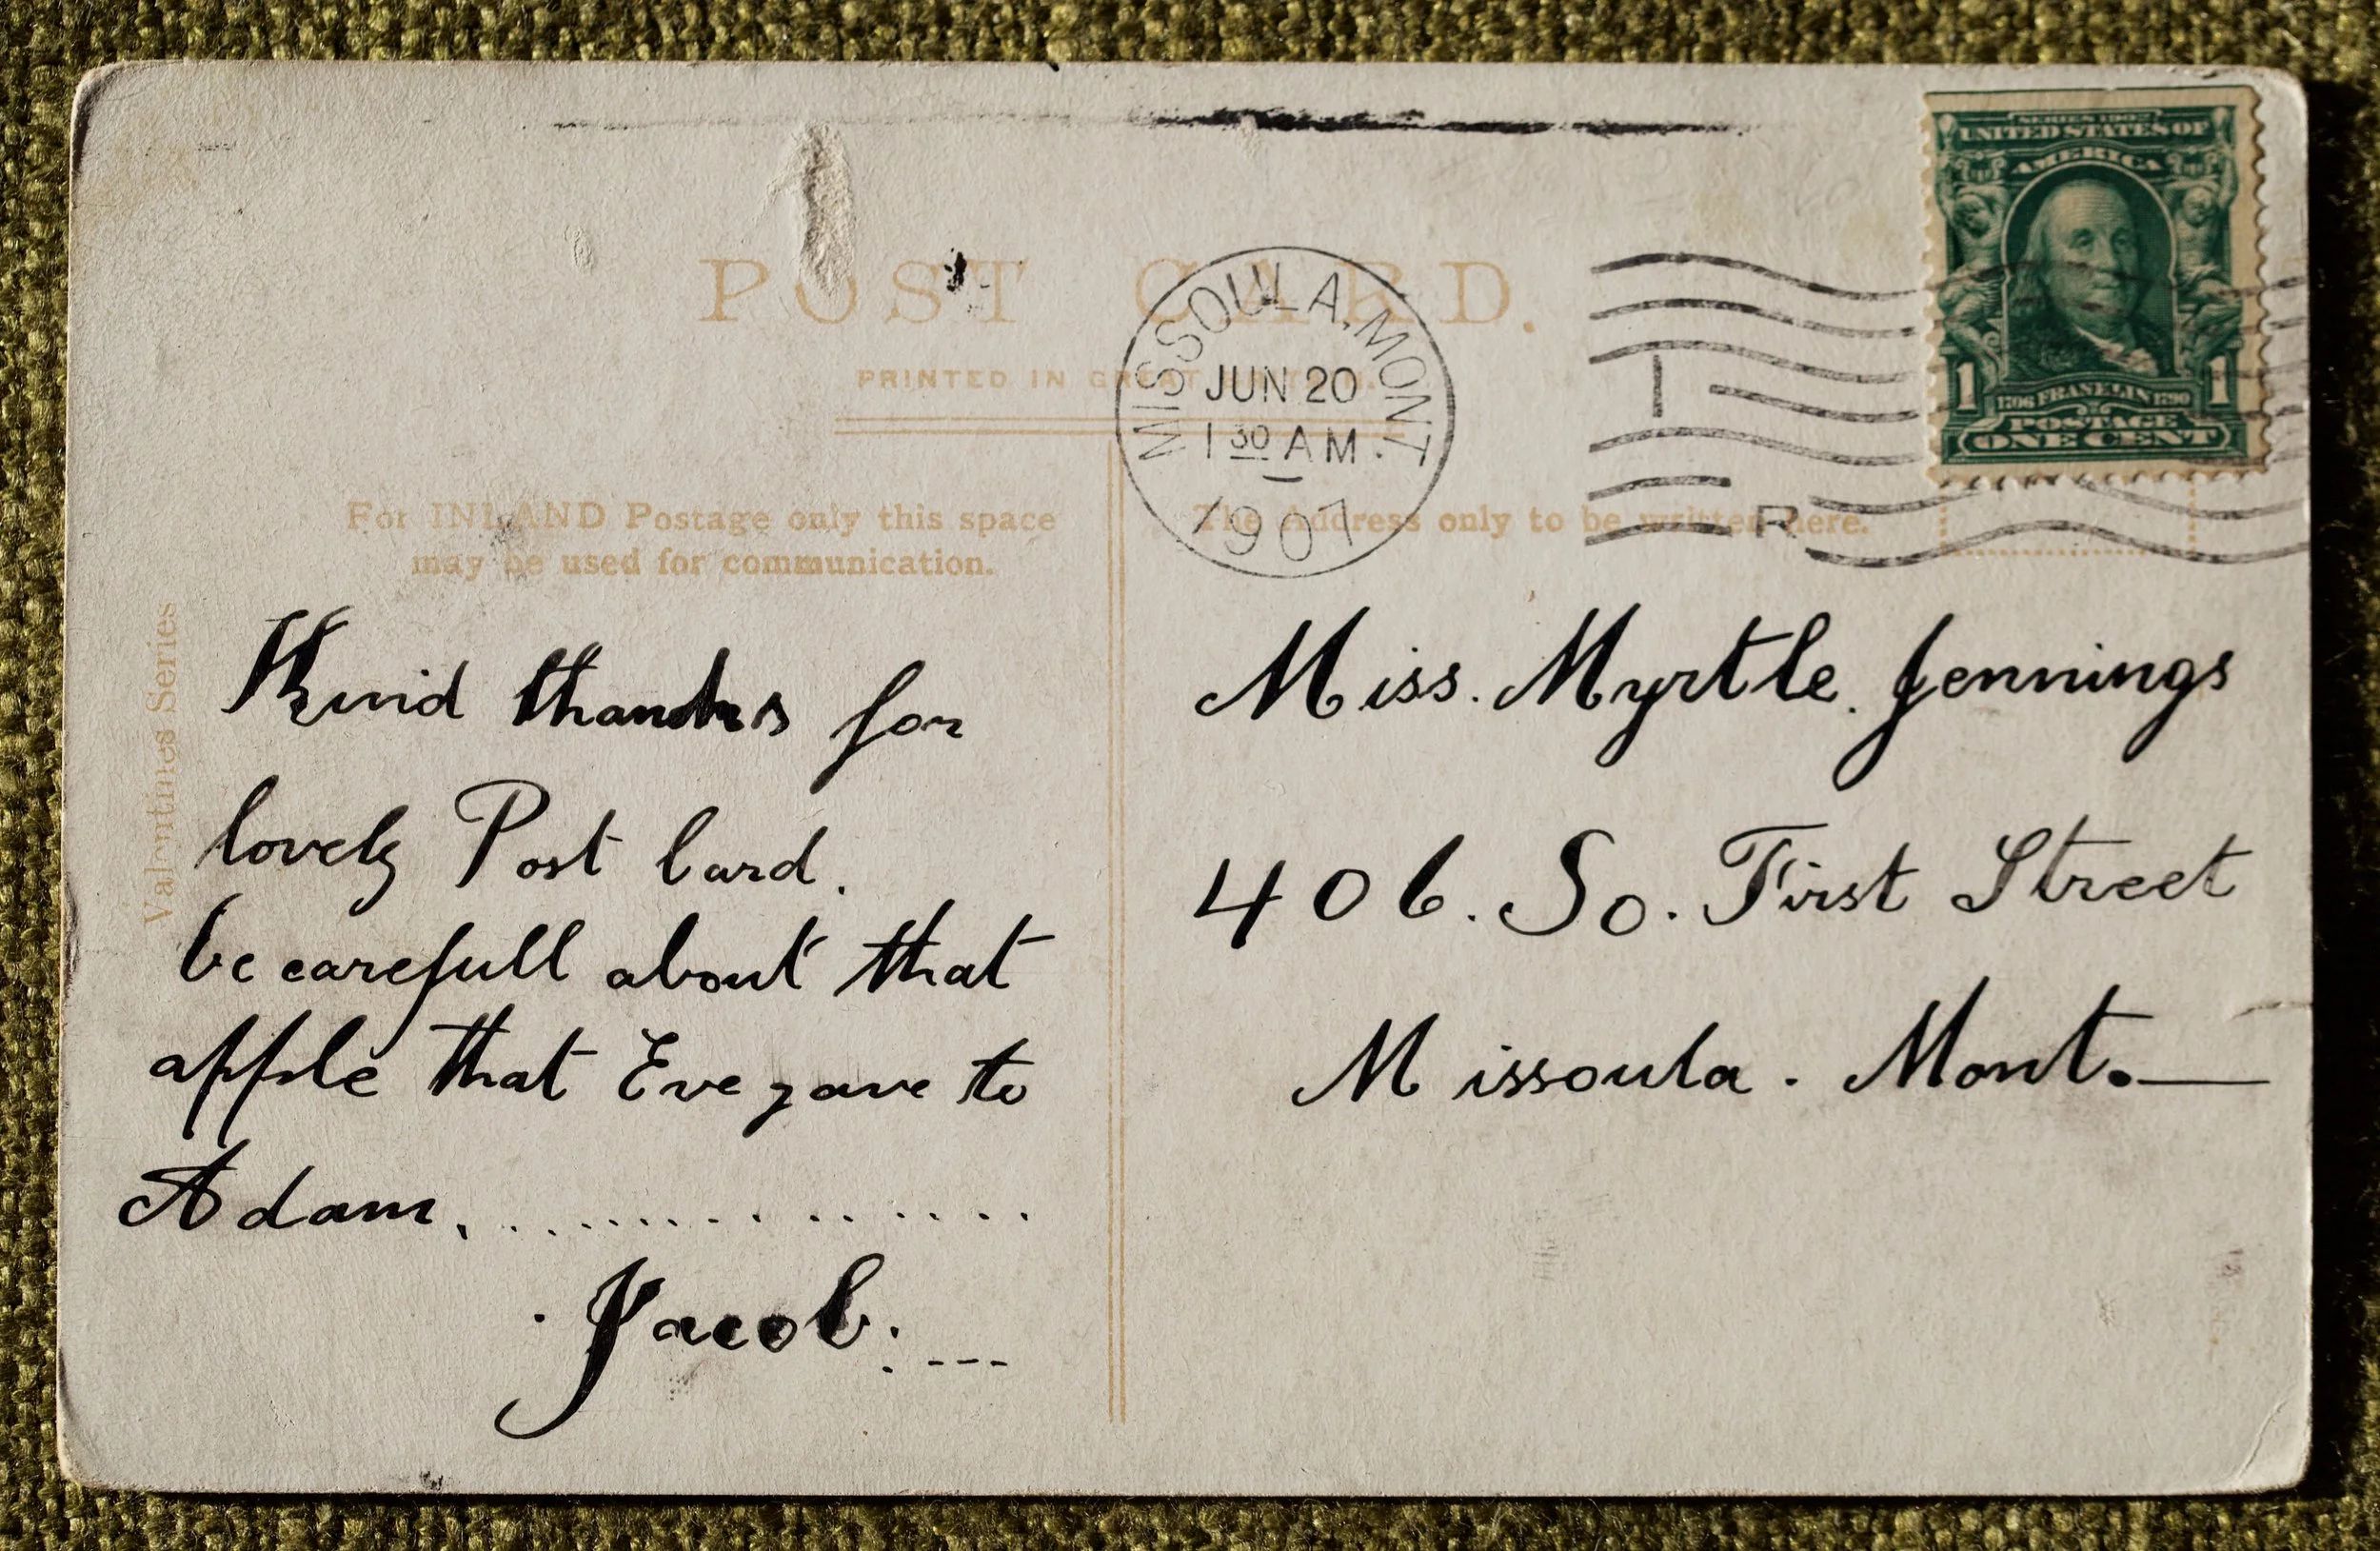 POST CARD.
PRINTED IN GREAT BRITAIN.
For INLAND Postage only this space
may be used for communication.
The Address only to be written here.
Valentines Series
MISSOULA, MONT.
JUN 20
1 30 AM
1907
I
R
SERIES 1902
UNITED STATES OF
AMERICA
1 1
1706 FRANKLIN 1790
POSTAGE
ONE CENT
Kind thanks for
lovely Post Card.
be carefull about that
apple that Eve gave to
Adam, ................
Jacob. ---
Miss. Myrtle. Jennings
406. So. First Street
Missoula. Mont.—